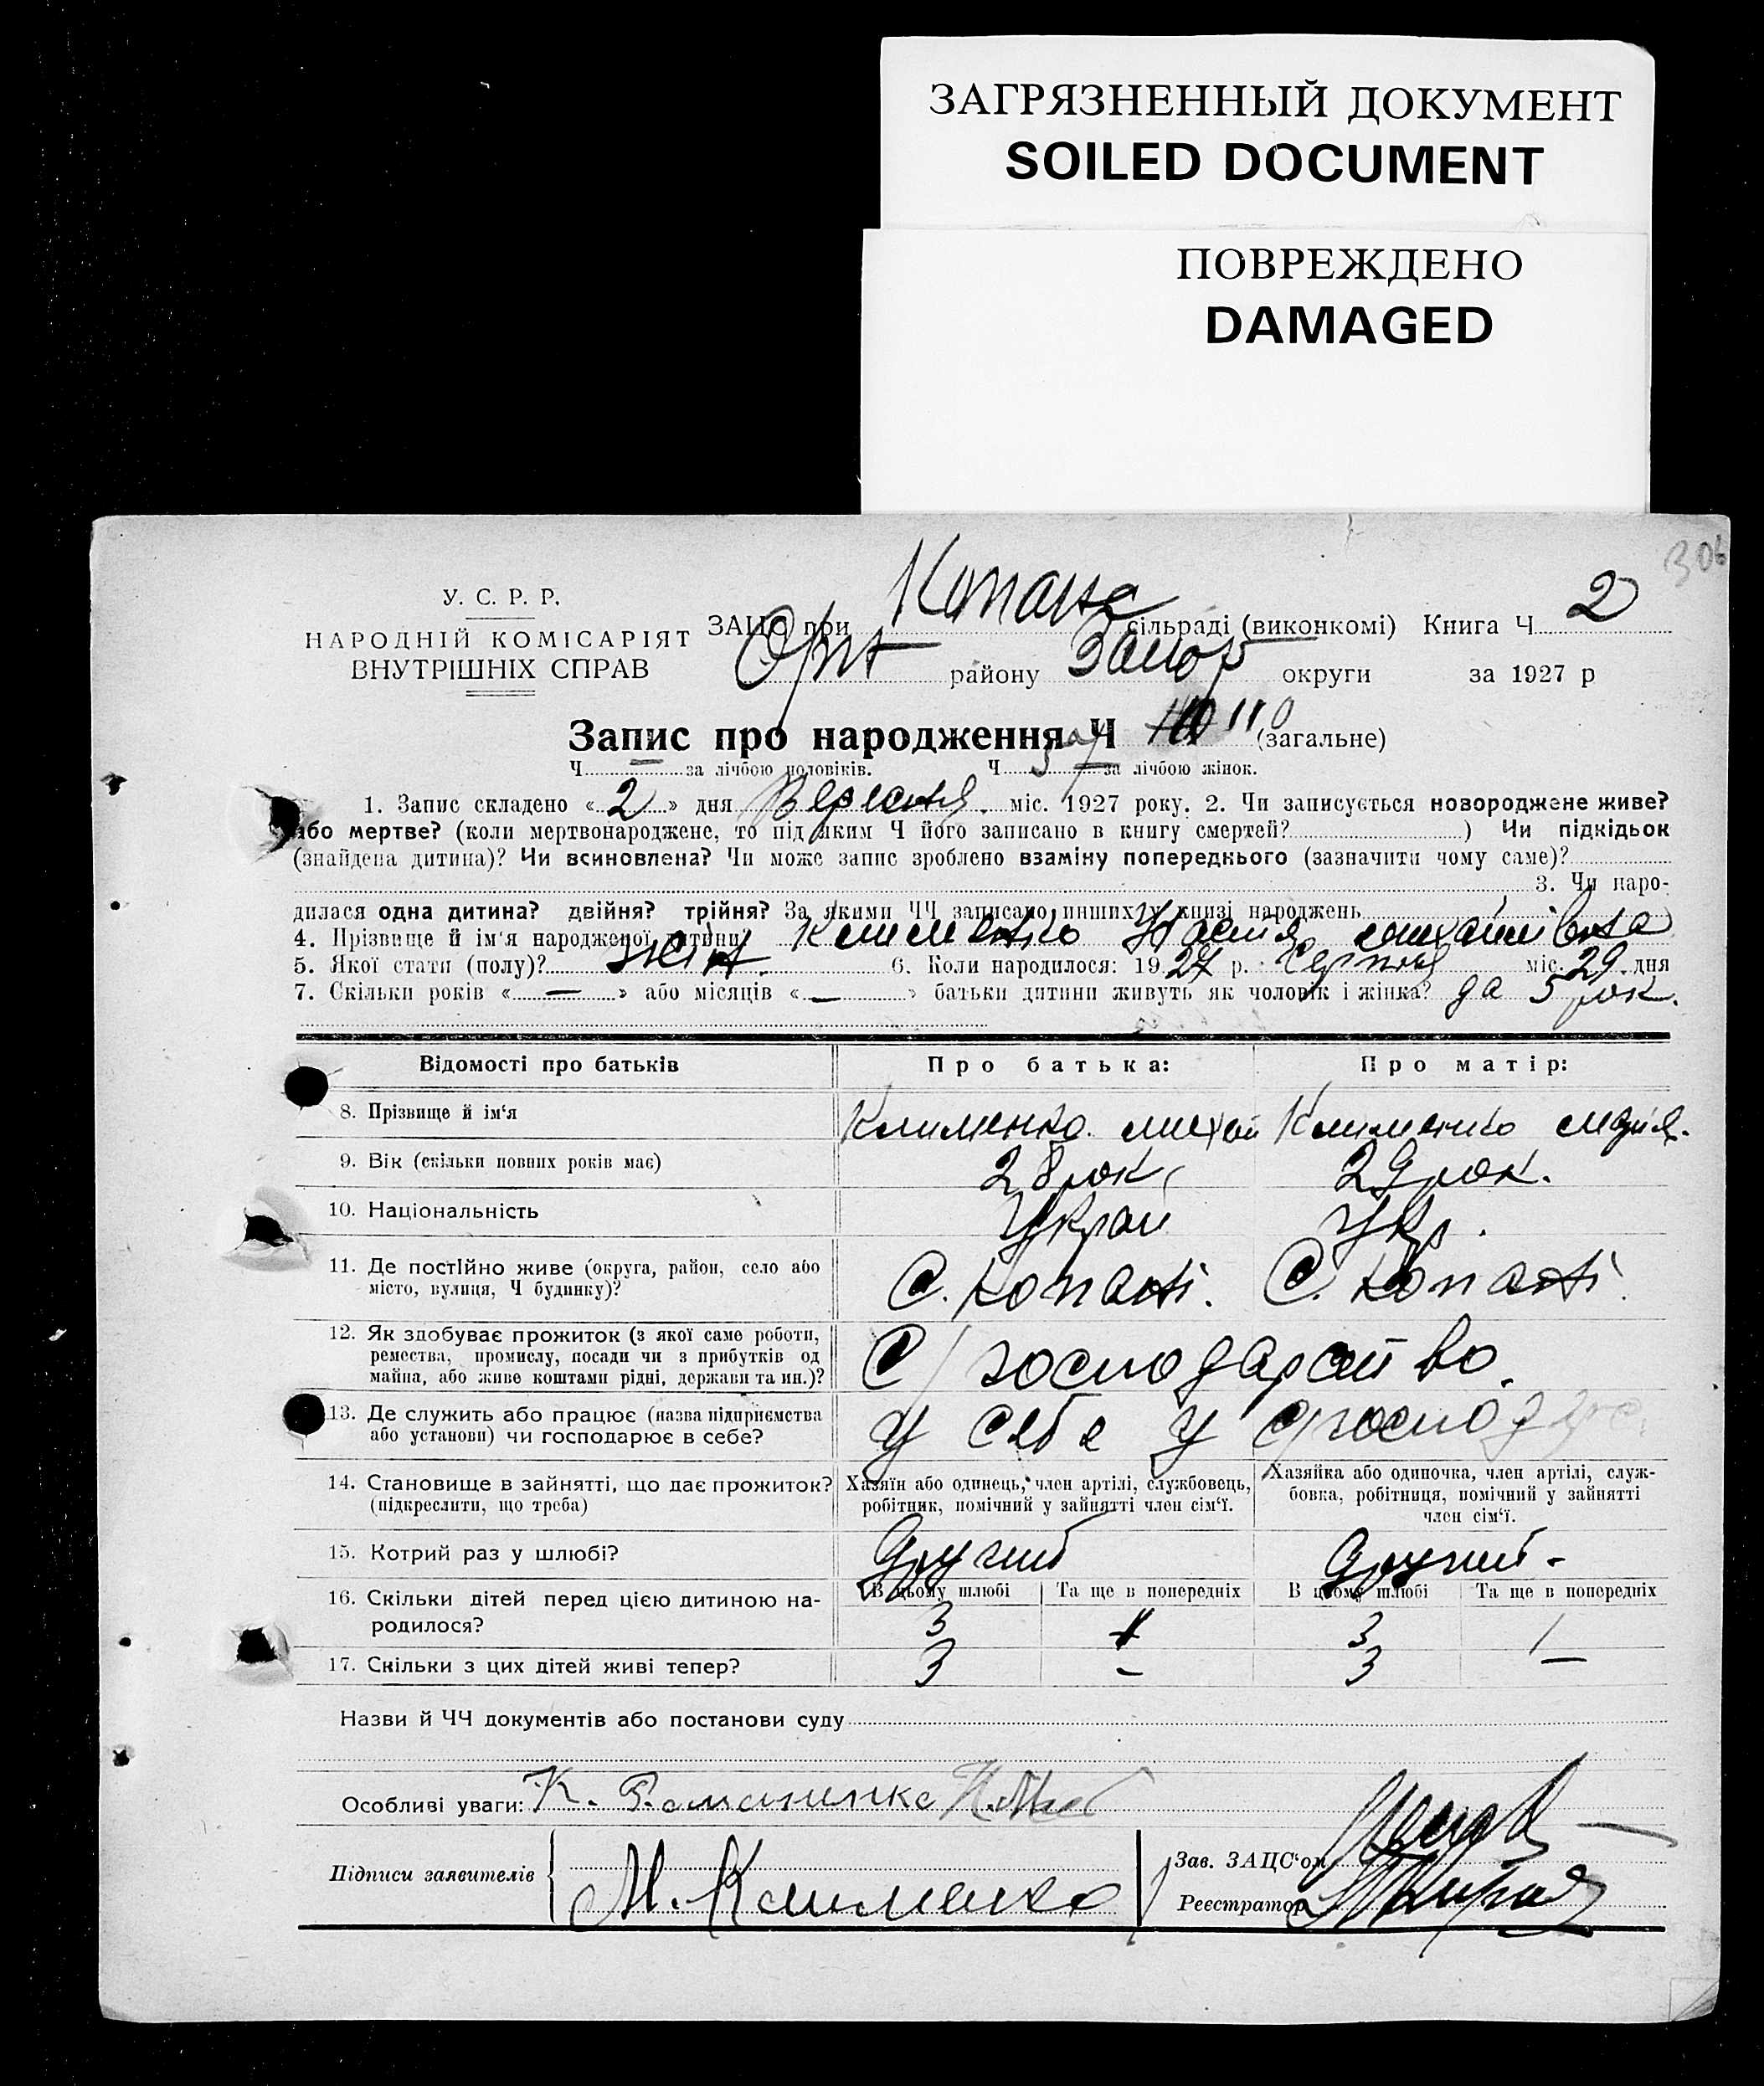 ЗАГРЯЗНЕННЫЙ ДОКУМЕНТ
SOILED DOCUMENT
ПОВРЕЖДЕНО
DAMAGED
306
У. С. Р. Р.
НАРОДНІЙ КОМІСАРІЯТ
ВНУТРІШНІХ СПРАВ
ЗАЦС при Копань сільраді (виконкомі) Книга Ч 2
Оріх району Запор округи за 1927 р
Запис про народження Ч 110 (загальне)
Ч — за лічбою чоловіків. Ч 57 за лічбою жінок.
1. Запис складено «2» дня Вересня міс. 1927 року. 2. Чи записується новороджене живе?
або мертве? (коли мертвонароджене, то під яким Ч його записано в книгу смертей? ) Чи підкідьок
(знайдена дитина)? Чи всиновлена? Чи може запис зроблено взаміну попереднього (зазначити чому саме)?
3. Чи наро-
дилася одна дитина? двійня? трійня? За якими ЧЧ записано инших у книзі народжень
4. Прізвище й ім'я народженої дитини Клименко михайлівна
5. Якої стати (полу)? жін. 6. Коли народилося: 1927 р. Серпня міс. 29 дня
7. Скільки років «—» або місяців «—» батьки дитини живуть як чоловік і жінка? да 5 рок.
Відомості про батьків Про батька: Про матір:
8. Прізвище й ім'я Клименко михай Клименко марія.
9. Вік (скільки повних років має) 28 рок. 29 рок.
10. Національність Украй Укр.
11. Де постійно живе (округа, район, село або
місто, вулиця, Ч будинку)? С. Копані. С. Копані.
12. Як здобуває прожиток (з якої саме роботи,
ремества, промислу, посади чи з прибутків од
майна, або живе коштами рідні, держави та ин.)? С/господарство.
13. Де служить або працює (назва підприємства
або установи) чи господарює в себе? у себе у
14. Становище в зайнятті, що дає прожиток? Хазяїн або одинець, член артілі, службовець, Хазяйка або одиночка, член артілі, служ-
(підкреслити, що треба) робітник, помічний у зайнятті член сім'ї. бовка, робітниця, помічний у зайнятті
член сім'ї.
15. Котрий раз у шлюбі? Другий Другий -
В цьому шлюбі Та ще в попередніх В цьому шлюбі Та ще в попередніх
16. Скільки дітей перед цією дитиною на-
родилося? 3 3 1
17. Скільки з цих дітей живі тепер? 3 – 3 —
Назви й ЧЧ документів або постанови суду
Особливі уваги: К.
Підписи заявителів М. Клименко
Зав. ЗАЦС'ом
Реєстратор